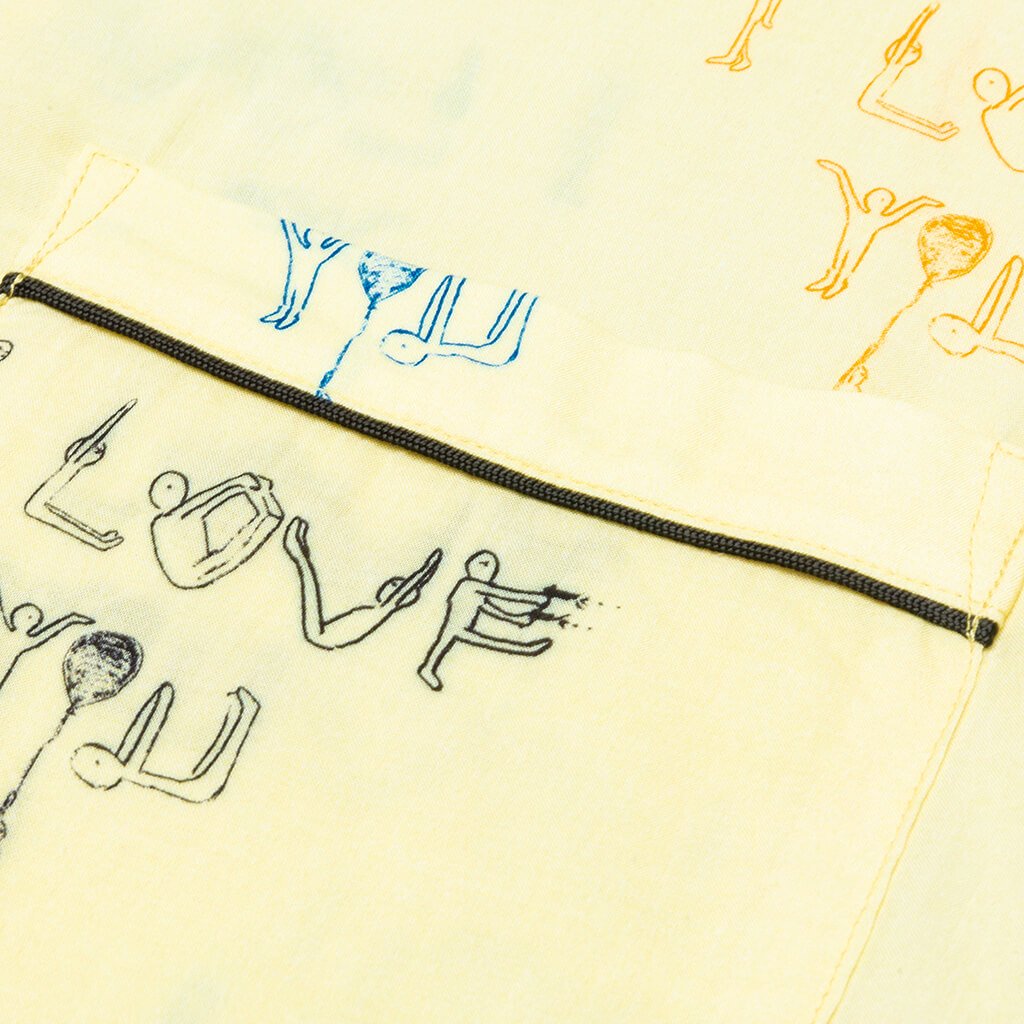 I
L O
YOU
YOU
LOVE
YOU